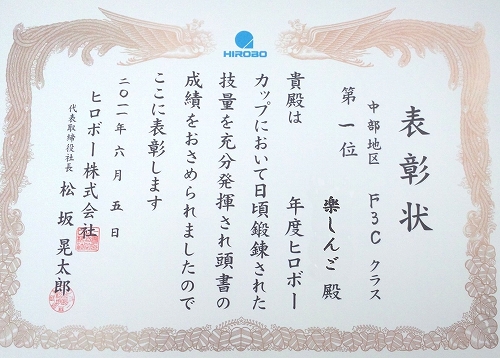 HIROBO
表彰状
中部地区 F3C クラス
第一位
楽しんご 殿
貴殿は 年度ヒロボー
カップにおいて日頃鍛錬された
技量を充分発揮され頭書の
成績をおさめられましたので
ここに表彰します
二〇一一年 六月 五日
ヒロボー株式会社
代表取締役社長 松坂晃太郎